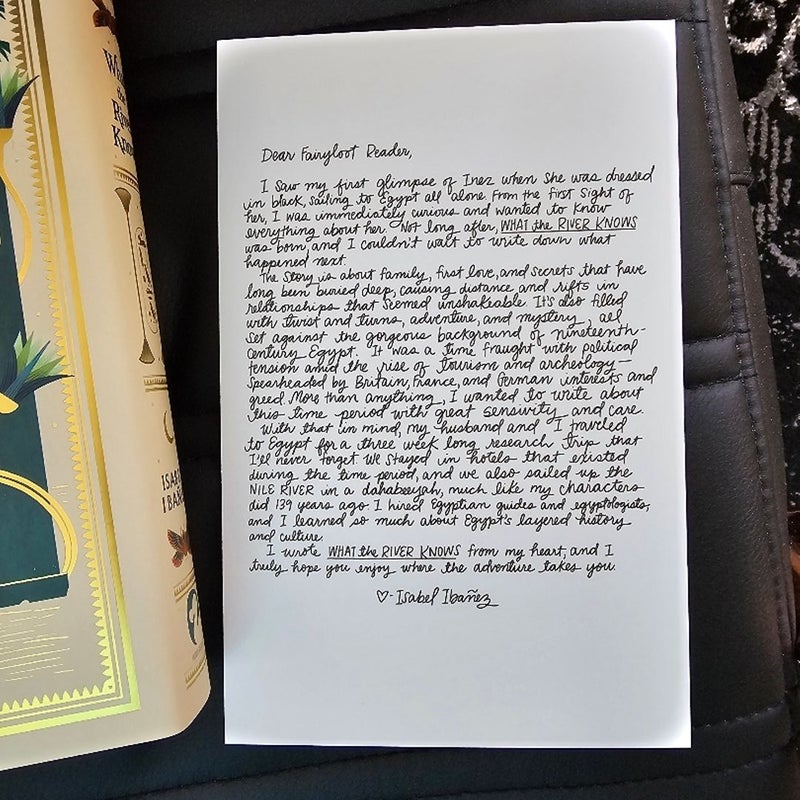 What
the
River
Know
ISABEL
IBAÑ
Dear Fairyloot Reader,
I saw my first glimpse of Inez when she was dressed
in black, sailing to Egypt all alone. From the first sight of
her, I was immediately curious and wanted to know
everything about her. Not long after, WHAT the RIVER KNOWS
was born, and I couldn't wait to write down what
happened next.
The story is about family, first love, and secrets that have
long been buried deep, causing distance and rifts in
relationships that seemed unshakeable. It's also filled
with twist and turns, adventure, and mystery, all
set against the gorgeous background of nineteenth-
century Egypt. It was a time fraught with political
tension amid the rise of tourism and archeology—
spearheaded by Britain, France, and German interests and
greed. More than anything, I wanted to write about
this time period with great sensivity and care.
With that in mind, my husband and I traveled
to Egypt for a three week long research trip that
I'll never forget. We stayed in hotels that existed
during the time period, and we also sailed up the
NILE RIVER in a dahabeeyah, much like my characters
did 139 years ago. I hired Egyptian guides and egyptologists,
and I learned so much about Egypt's layered history
and culture.
I wrote WHAT the RIVER KNOWS from my heart, and I
truly hope you enjoy where the adventure takes you.
♡- Isabel Ibañez